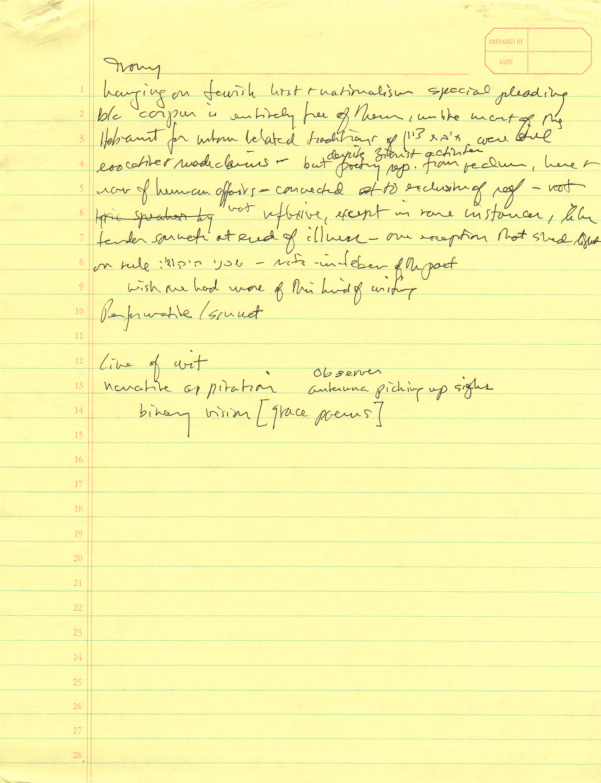 PREPARED BY
DATE
Irony
1 hanging on Jewish hist + nationalism special pleading
2 b/c corpus is entirely free of them, unlike most of the
3 Hebraist for whom related traditions of were
despite Zionist activism
4 evocative made claims - but poetry rep. from realism, here +
5 now of human affairs - connected to exclusive of - not
6 not reflexive, except in rare instances, like
7 tender sonnets at end of illness - one exception that shed light
8 on rule : - note of the poet
9 wish we had more of this kind of writing
10 Performative / sonnet
11
12 Line of wit
Observer
13 narrative aspiration antenna picking up sighs
14 binary vision [grace poems]
15
16
17
18
19
20
21
22
23
24
25
26
27
28